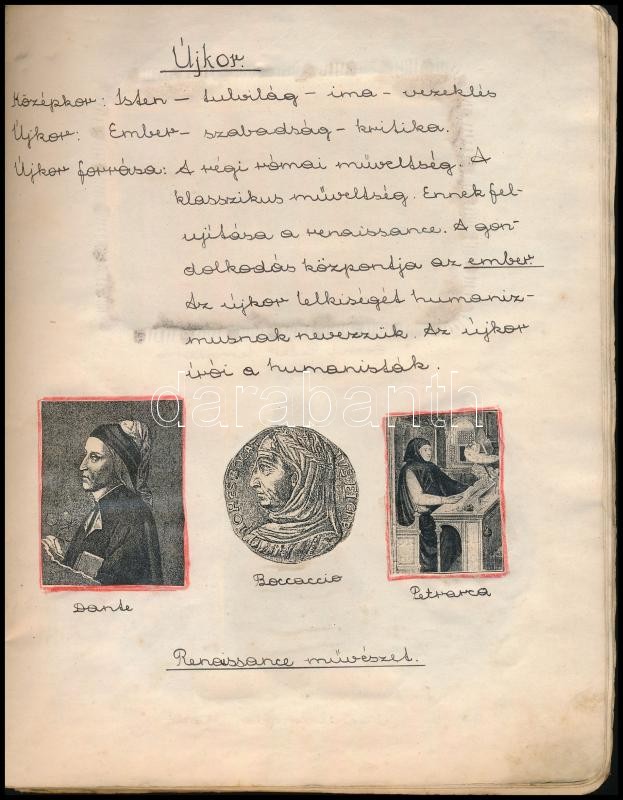 Újkor.
Középkor: Isten – tulvilág – ima – vezeklés
Újkor: Ember – szabadság – kritika.
Újkor forrása: A régi római műveltség. A
klasszikus műveltség. Ennek fel-
ujítása a renaissance. A gon-
dolkodás központja az ember.
Az újkor lelkiségét humaniz-
musnak nevezzük. Az újkor
írói a humanisták.
darabanth
Dante
Boccaccio
Petrarca
Renaissance művészet.